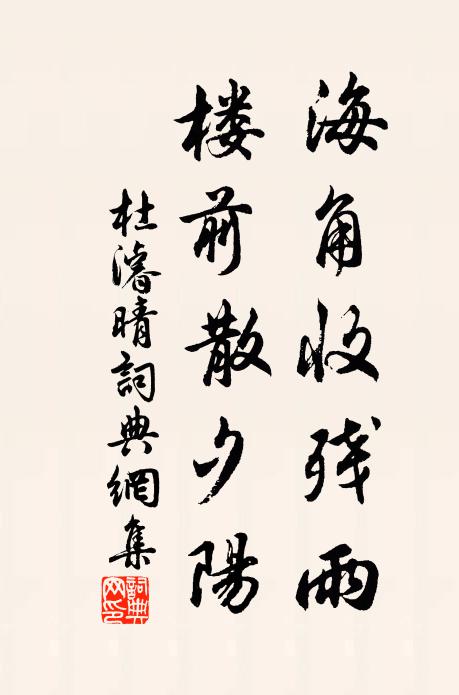 海角收残雨
楼前散夕陽
杜濬晴詞典網集
詞典网印